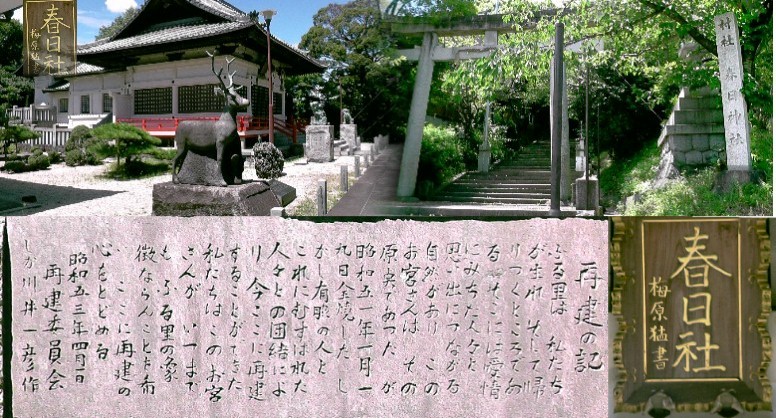 春日社
梅原猛
村社 春日神社
再建の記
ふる里は 私たち
が生れ そして帰
りつくところであ
る そこには愛情
にみちた人々と
思い出につながる
自然があり この
お宮さんは その
原点であった が
昭和五一年一月一
九日全焼した し
かし有眼の人と
これにむすばれた
人々との団結によ
り 今ここに再建
することができた
私たちはこのお宮
さんが いつまで
も ふる里の象
徴ならんことを希
い ここに再建の
心をとどめる
昭和五三年四月一日
再建委員会
川井一彦作
春日社
梅原猛書